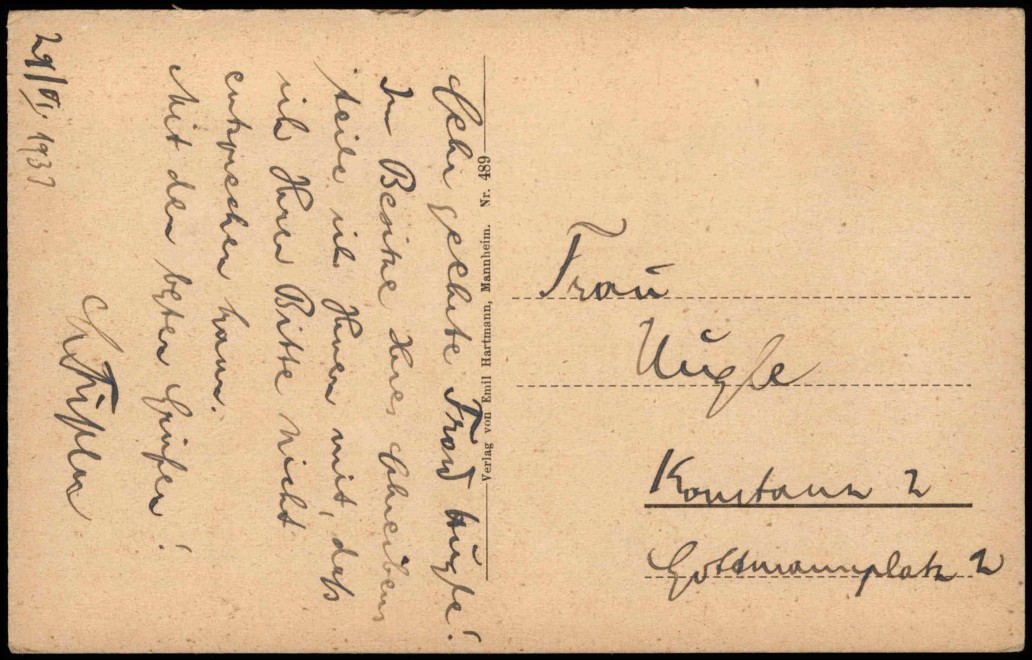 29/VI. 1937
Sehr geehrte Frau Nügle!
Im Besitze Ihres Schreibens
teile ich Ihnen mit, daß
ich Ihrer Bitte nicht
entsprechen kann.
Mit den besten Grüßen!
Verlag von Emil Hartmann, Mannheim. Nr. 489
Frau
Nügle
Konstanz 2
Gottmannplatz 2